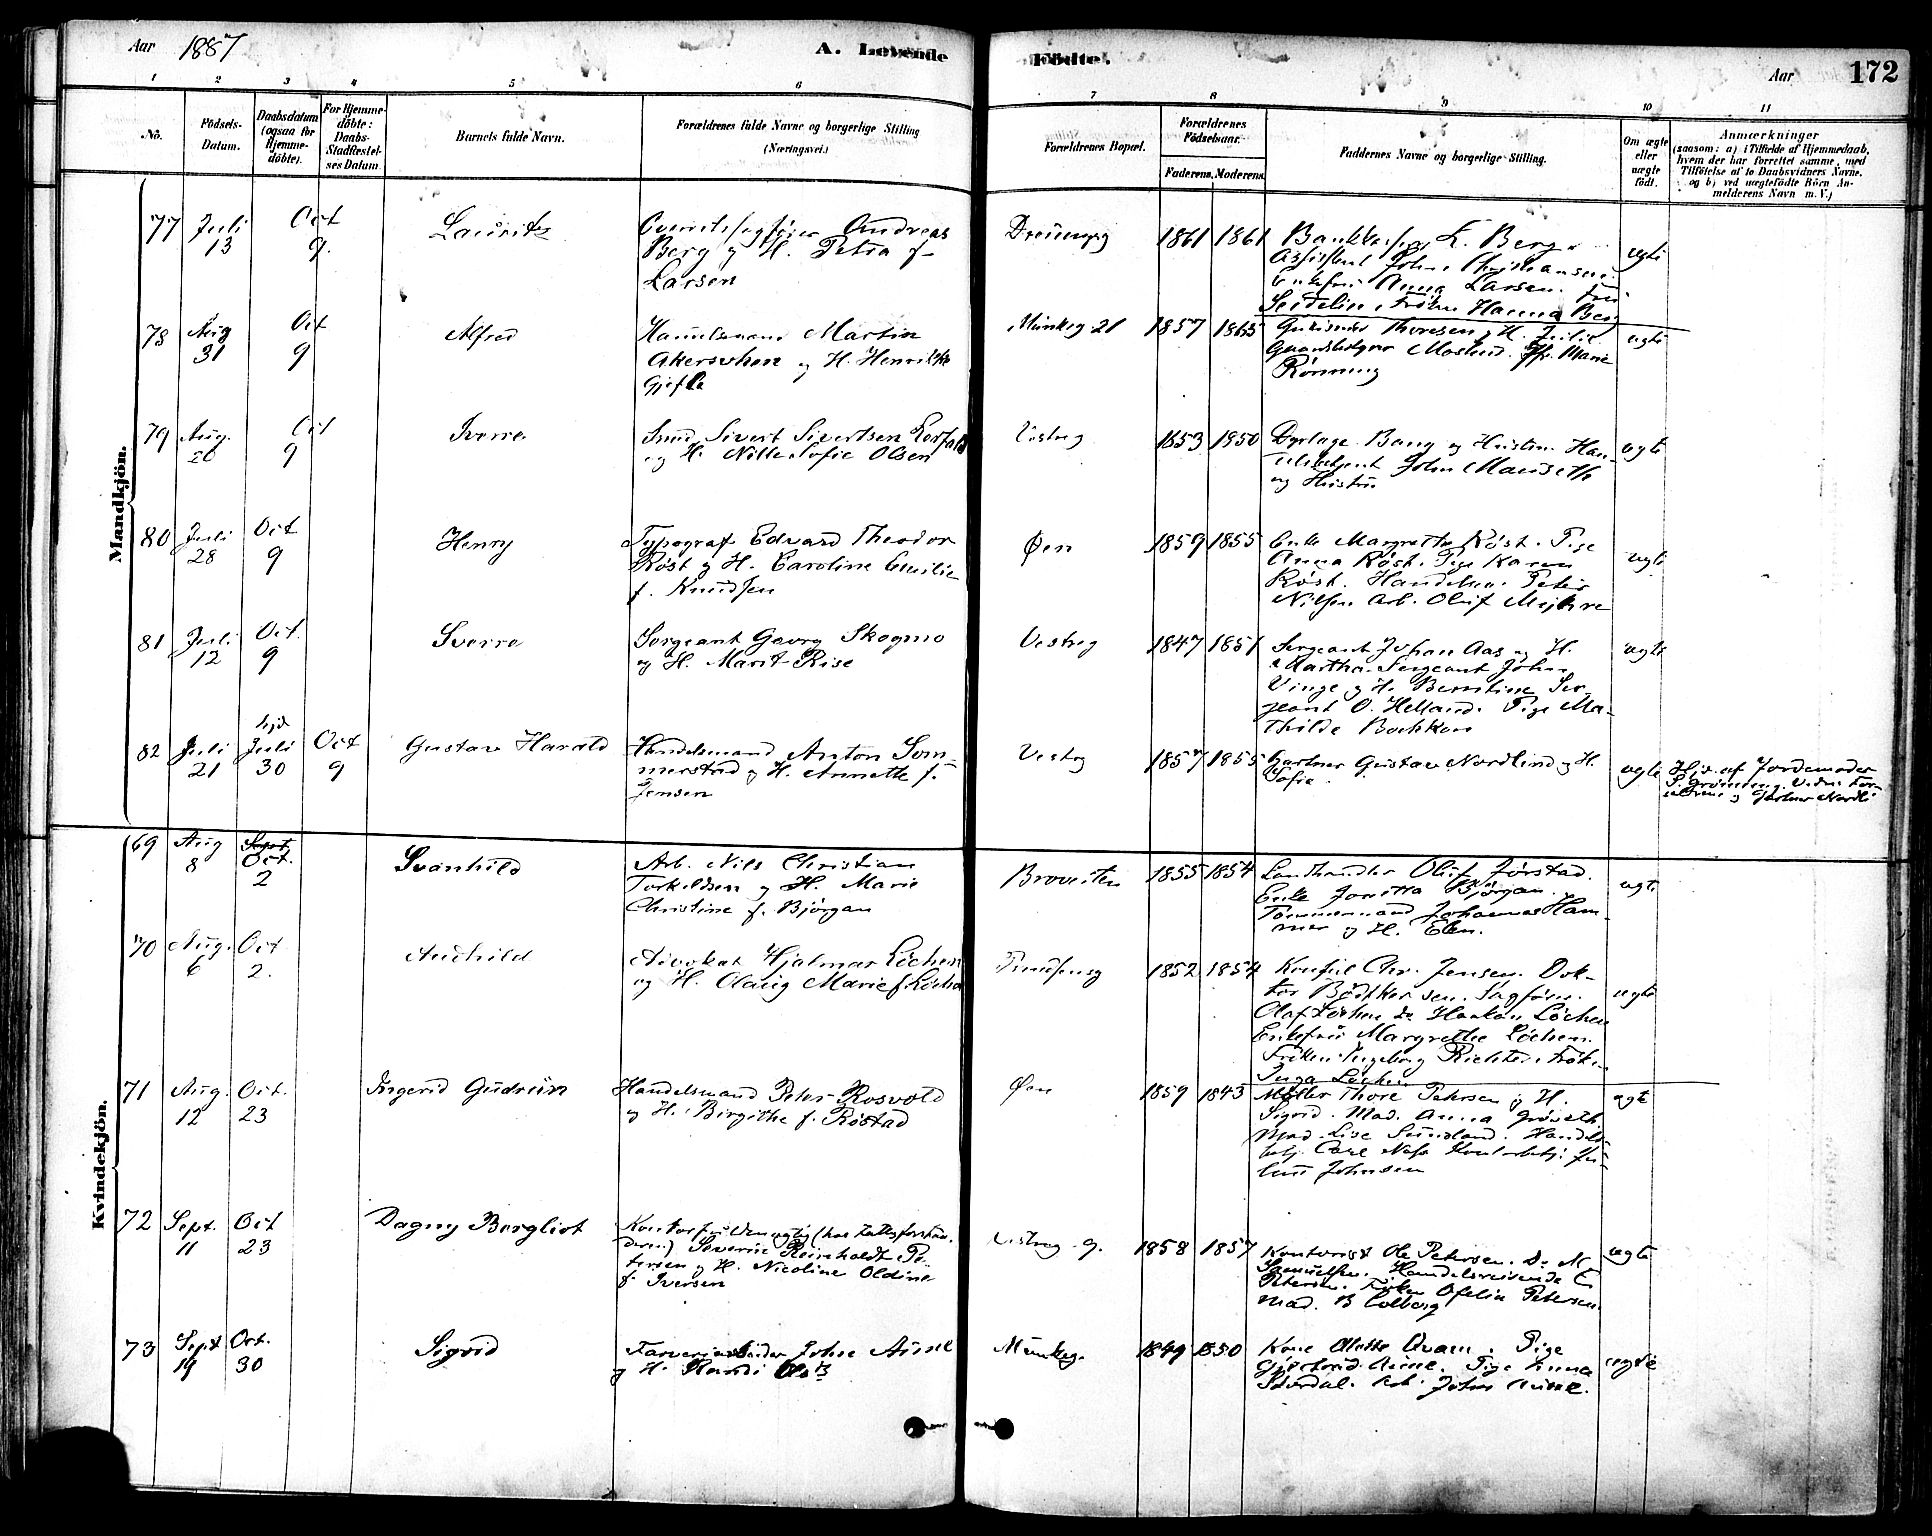 Aar 1887
A. Levende Födte.
Aar 172
1 2 3 4 5 6 7 8 9 10 11
No.
Födsels-Datum.
Daabsdatum (ogsaa for Hjemme-döbte).
For Hjemme-döbte: Daabs-Stadfæstel-ses Datum.
Barnets fulde Navn.
Forældrenes fulde Navne og borgerlige Stilling (Næringsvei.)
Forældrenes Bopæl.
Forældrenes Födselsaar.
Faderens. Moderens.
Faddernes Navne og borgerlige Stilling.
Om ægte eller uægte født.
Anmærkninger
(saasom: a) i Tilfælde af Hjemmedaab,
hvem der har forrettet samme, med
Tilföielse af to Daabsvidners Navne,
og b) ved uægtefödte Börn An-
melderens Navn m. V.)
Mandkjön.
77 Juli 13 Oct 9. Lauritz
Andreas
Berg og H. Petra f.
Larsen
1861 1861
L. Berg.
Assistent John Christiansen.
Enkefru Anna Larsen. Fru
Seidelin. Frøken Hanna Berg
ægte
78 Aug 31 Oct 9 Alfred
Handelsmand Martin
Akersvhen og H. Henrikke
Gjefle
Munkeg 21 1857 1865
Thoresen og H. Julie
Gaardbruger Moslund. Marie
Rönning
ægte
79 Aug. 26 Oct 9 Sverre
Smed Sivert Sivertsen
og H. Nille Sofie Olsen
Vestreg 1853 1850
Dyrlæge Bang og Hustru. Han-
delsbetjent John Mauseth
og Hustru
ægte
80 Juli 28 Oct 9 Henry
Typograf Edvard Theodor
Röst og H. Caroline Emilie
f. Knudsen
Øen 1859 1855
Enke Margrethe Röst. Pige
Anna Röst. Pige Karen
Röst. Handelsm. Peter
Nilsen Arb. Oluf Myhre
ægte
81 Juli 12 Oct. 9 Sverre
Sergeant Georg Skogmo
og H. Marit Rise
Vestreg 1847 1851
Sergeant Johan Aas og H.
Martha. Sergeant John
Vinge og H. Berntine Ser-
jeant O. Helland. Pige Ma-
thilde Bockkan
ægte
82 Juli 21 hjd Juli 30 Oct 9 Gustav Harald
Handelsmand Anton Som-
merstad og H. Annette f.
Jensen
Vestreg 1857 1855
Gartner Gustav Nordlind og H.
Sofie
ægte
Hjd. af Jordemoder
Grönning. Vidner For-
ældrene og Gartner Nordli
Kvindekjön.
69 Aug 8 Sept Oct. 2 Svanhild
Arb. Nils Christian
Torkildsen og H. Marie
Christine f. Björgan
Brovesten 1855 1854
Landhandler Oluf Jörstad.
Enke Jonetta Björgan.
Tömmermand Johannes Ham-
mer og H. Elen.
ægte
70 Aug. 6 Oct 2. Audhild
Advokat Hjalmar Löchen
og H. Olaug Marie f. Löchen
1852 1854
Konsul Chr. Jensen. Dok-
tor Bödtker sen. Sagförer
Olaf Löchen do Haakon Löchen
Enkefru Margrethe Löchen.
Fröken Ingeborg Richter. Frök.
Inga Löchen
ægte
71 Aug. 12 Oct. 23 Ingerid Gudrun
Handelsmand Peter Rosvold
og H. Birgithe f. Röstad
Øen 1859 1843
Möller Thore Petersen og H.
Sigrid. Mad. Anna
Mad. Lise Sundland. Handels-
betj. Carl Næss Kontorbetj. Ju-
lius Johnsen
ægte
72 Sept. 11 Oct 23 Dagny Bergliot
Severin Reinholdt Pe-
tersen og H. Nicoline Oldine
f. Iversen
Vestreg 9. 1858 1857
Kontorist Ole Petersen. Do M
Samuelsen. Handelsreisende E
Petersen. Fröken Ofelia Petersen
Mad. B Colberg
ægte
73 Sept 19 Oct. 30 Sigrid
Farveriarbeider John Aune
og H. Randi
Munkeg. 1849 1850
Kone Mette Qvam. Pige
Gjertrud Aune. Pige Anna
Stverdal. Arb. John Aune.
ægte